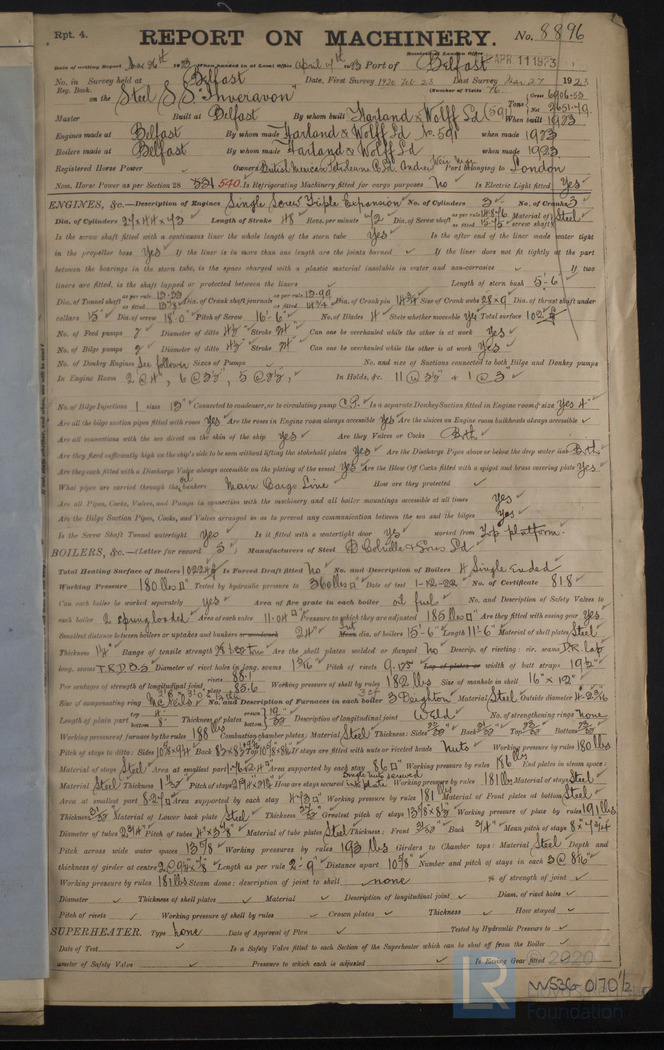 Rpt. 4. REPORT ON MACHINERY. No. 8896
Received at London Office APR 11 1923
Date of writing Report 19 When handed in at Local Office April 19 Port of Belfast
No. in Survey held at Belfast Date, First Survey 1920 Feb 23 Last Survey Mar 27 1923
Reg. Book. (Number of Visits 76
on the Steel S.S. "Inveravon" Tons Gross 6906.53 Net
Master Built at Belfast By whom built Harland & Wolff Ld (591) When built 1923
Engines made at Belfast By whom made Harland & Wolff Ld No. 591 when made 1923
Boilers made at Belfast By whom made Harland & Wolff Ld when made 1923
Registered Horse Power Owners British Mexican Petroleum Co. Ld. Port belonging to London
Nom. Horse Power as per Section 28 540. Is Refrigerating Machinery fitted for cargo purposes No Is Electric Light fitted Yes
ENGINES, &c.—Description of Engines Single Screw Triple Expansion No. of Cylinders 3 No. of Cranks 3
Dia. of Cylinders 27 x 44 x 73 Length of Stroke 48 Revs. per minute 72 Dia. of Screw shaft as per rule as fitted Material of screw shaft Steel
Is the screw shaft fitted with a continuous liner the whole length of the stern tube Yes Is the after end of the liner made water tight
in the propeller boss Yes If the liner is in more than one length are the joints burned If the liner does not fit tightly at the part
between the bearings in the stern tube, is the space charged with a plastic material insoluble in water and non-corrosive If two
liners are fitted, is the shaft lapped or protected between the liners Length of stern bush 5'-6"
Dia. of Tunnel shaft as per rule as fitted Dia. of Crank shaft journals as per rule 13.99 as fitted 14¾ Dia. of Crank pin 14¾ Size of Crank webs 28 x 9 Dia. of thrust shaft under
collars 15" Dia. of screw 18'.0" Pitch of Screw 16'.6" No. of Blades 4 State whether moveable Yes Total surface 102
No. of Feed pumps 2 Diameter of ditto 4½ Stroke 24" Can one be overhauled while the other is at work Yes
No. of Bilge pumps 2 Diameter of ditto 4½ Stroke 24" Can one be overhauled while the other is at work Yes
No. of Donkey Engines See follower Sizes of Pumps No. and size of Suctions connected to both Bilge and Donkey pumps
In Engine Room 2 @ 4", 1 @ 3½", 5 @ 2½", In Holds, &c. 11 @ 3½" & 1 @ 3"
No. of Bilge Injections 1 sizes 13" Connected to condenser, or to circulating pump C.P. Is a separate Donkey Suction fitted in Engine room & size Yes 4"
Are all the bilge suction pipes fitted with roses Yes Are the roses in Engine room always accessible Yes Are the sluices on Engine room bulkheads always accessible
Are all connections with the sea direct on the skin of the ship Yes Are they Valves or Cocks Both
Are they fixed sufficiently high on the ship's side to be seen without lifting the stokehold plates Yes Are the Discharge Pipes above or below the deep water line Both
Are they each fitted with a Discharge Valve always accessible on the plating of the vessel Yes Are the Blow Off Cocks fitted with a spigot and brass covering plate Yes
What pipes are carried through the oil bunkers Main Cargo Line How are they protected
Are all Pipes, Cocks, Valves, and Pumps in connection with the machinery and all boiler mountings accessible at all times Yes
Are the Bilge Suction Pipes, Cocks, and Valves arranged so as to prevent any communication between the sea and the bilges Yes
Is the Screw Shaft Tunnel watertight Yes Is it fitted with a watertight door Yes worked from Top platform.
BOILERS, &c.—(Letter for record S) Manufacturers of Steel D Colville & Sons Ld
Total Heating Surface of Boilers 10224 Is Forced Draft fitted No No. and Description of Boilers 4 Single Ended
Working Pressure 180 lbs □" Tested by hydraulic pressure to 360 lbs □" Date of test 1-12-22 No. of Certificate 818
Can each boiler be worked separately Yes Area of fire grate in each boiler oil fuel No. and Description of Safety Valves to
each boiler 2 spring loaded Area of each valve 11.04 □" Pressure to which they are adjusted 185 lbs □" Are they fitted with easing gear Yes
Smallest distance between boilers or uptakes and bunkers or woodwork 24" dia. of boilers 15'-6" Length 11'-6" Material of shell plates Steel
Thickness Range of tensile strength Are the shell plates welded or flanged No Descrip. of riveting: cir. seams D.R. lap
long. seams T.R.D.B.S. Diameter of rivet holes in long. seams 1 3/16 Pitch of rivets Lap of plates or width of butt straps 19½"
Per centages of strength of longitudinal joint rivets 88.1 plate 85.6 Working pressure of shell by rules 182 lbs Size of manhole in shell 16" x 12"
Size of compensating ring McNeils No. and Description of Furnaces in each boiler 3 Deighton Material Steel Outside diameter
Length of plain part top bottom Thickness of plates crown bottom Description of longitudinal joint Weld No. of strengthening rings None
Working pressure of furnace by the rules 188 lbs Combustion chamber plates: Material Steel Thickness: Sides Back Top Bottom
Pitch of stays to ditto: Sides Back Top If stays are fitted with nuts or riveted heads Nuts Working pressure by rules 180 lbs
Material of stays Steel Area at smallest part Area supported by each stay 86 □" Working pressure by rules 186 lbs End plates in steam space:
Material Steel Thickness Pitch of stays How are stays secured Working pressure by rules 181 lbs Material of stays Steel
Area at smallest part 8.27 □" Area supported by each stay 473 □" Working pressure by rules 181 lbs Material of Front plates at bottom Steel
Thickness Material of Lower back plate Steel Thickness Greatest pitch of stays Working pressure of plate by rules 191 lbs
Diameter of tubes 2¾" Pitch of tubes Material of tube plates Steel Thickness: Front Back ¾" Mean pitch of stays
Pitch across wide water spaces Working pressures by rules 193 lbs Girders to Chamber tops: Material Steel Depth and
thickness of girder at centre Length as per rule 2'-9" Distance apart 10⅝" Number and pitch of stays in each
Working pressure by rules 181 lbs Steam dome: description of joint to shell none % of strength of joint
Diameter Thickness of shell plates Material Description of longitudinal joint Diam. of rivet holes
Pitch of rivets Working pressure of shell by rules Crown plates Thickness How stayed
SUPERHEATER. Type None Date of Approval of Plan Tested by Hydraulic Pressure to
Date of Test Is a Safety Valve fitted to each Section of the Superheater which can be shut off from the Boiler
ameter of Safety Valve Pressure to which each is adjusted Is Easing Gear fitted
© 2020
LR
Foundation
W536-0170 1/2